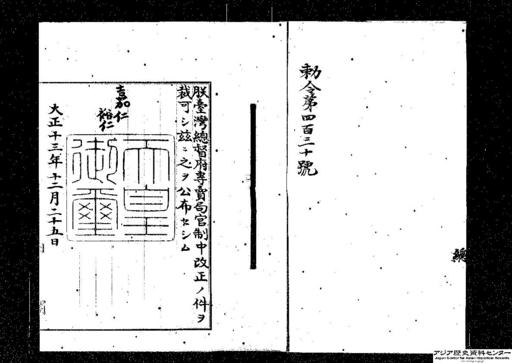 勅令第四百三十號
朕臺灣總督府專賣局官制中改正ノ件ヲ
裁可シ茲ニ之ヲ公布セシム
嘉仁
裕仁
天皇
御璽
大正十三年十二月二十五日
アジア歴史資料センター
Japan Center for Asian Historical Records